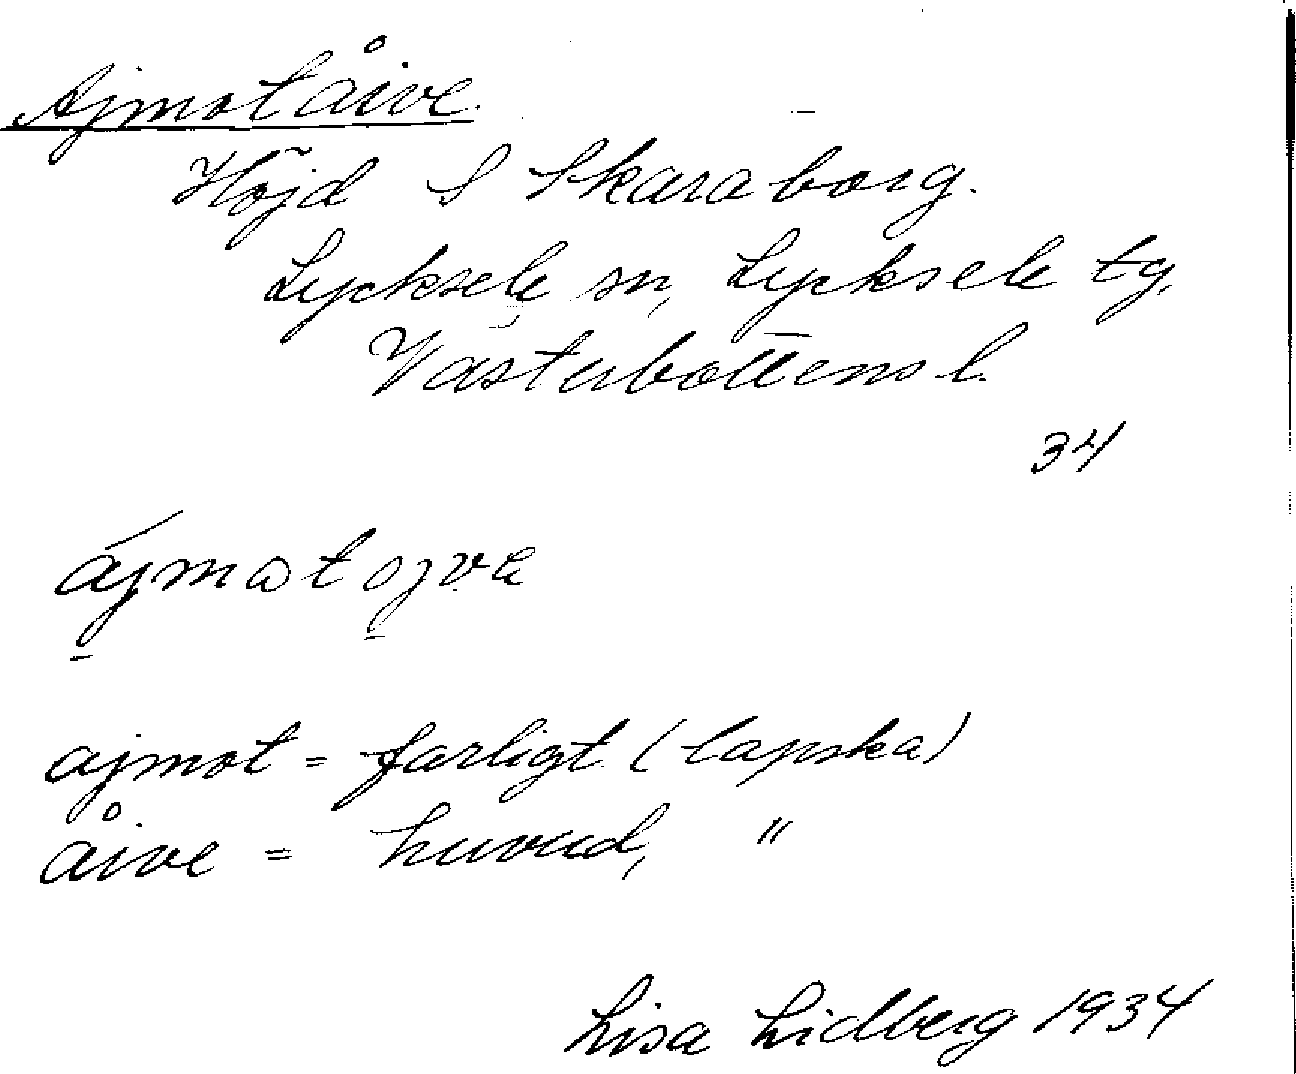 Ajmotåive
Höjd S Skaraborg.
Lycksele sn, Lycksele tg,
Västerbottens l.
34
ájmat ojva
ajmot = farligt (lapska)
åive = huvud, "
Lisa Lidberg 1934